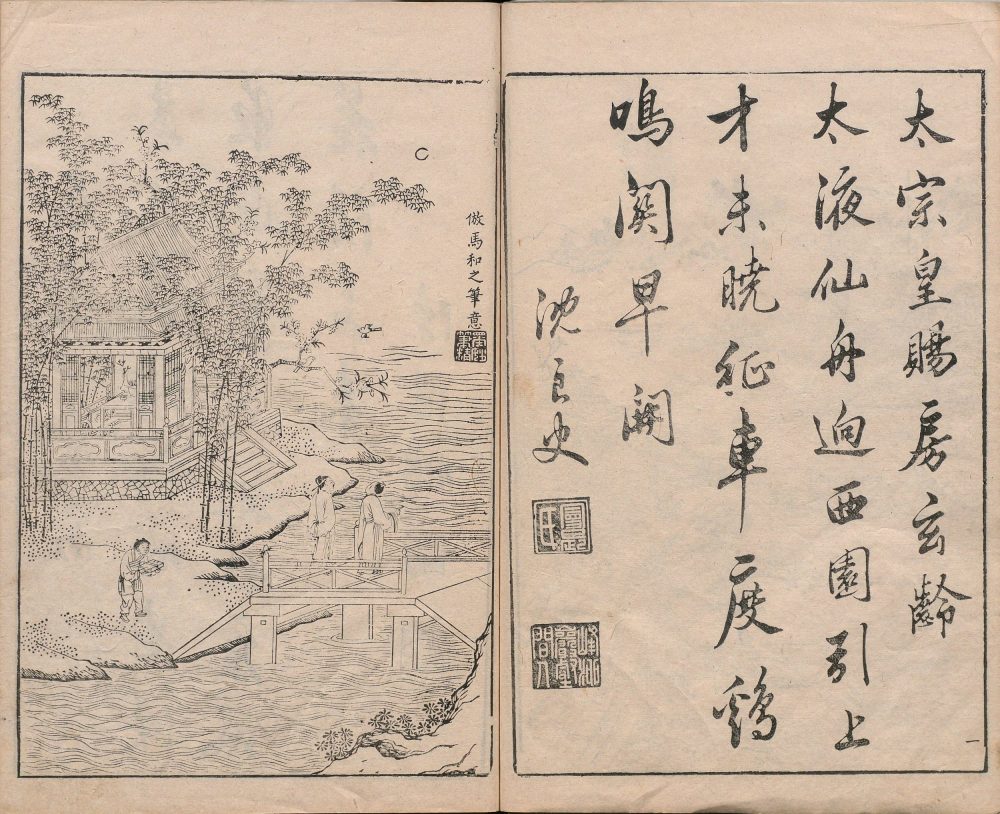 太宗皇賜房玄齡
太液仙舟逈西園引上
才未曉征車度鷄
鳴關早開
沈良史
倣馬和之筆意